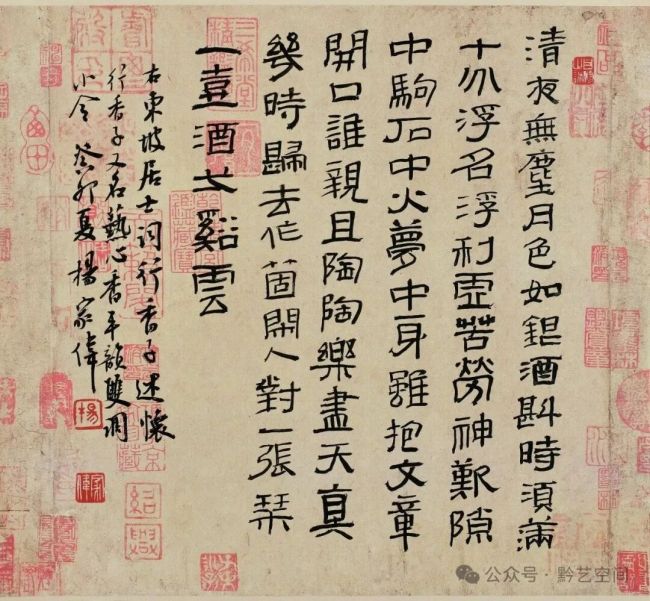 清夜無塵月色如銀酒斟時須滿
十分浮名浮利虛苦勞神歎隙
中駒石中火夢中身雖抱文章
開口誰親且陶陶樂盡天真
幾時歸去作箇閒人對一張琴
一壺酒一谿雲
右東坡居士詞行香子述懷
行香子又名爇心香平韻雙調
小令 癸卯夏 楊家偉
楊
家偉
紹興
公众号 · 黔艺空间